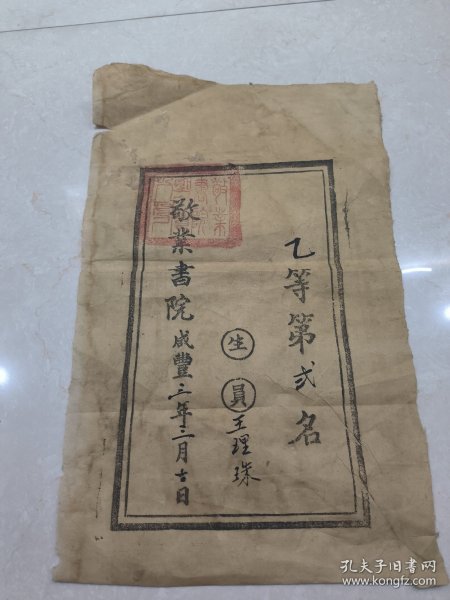 乙等第弍名
生員王理琛
敬業書院咸豐三年三月十日
孔夫子旧书网
www.kongfz.com